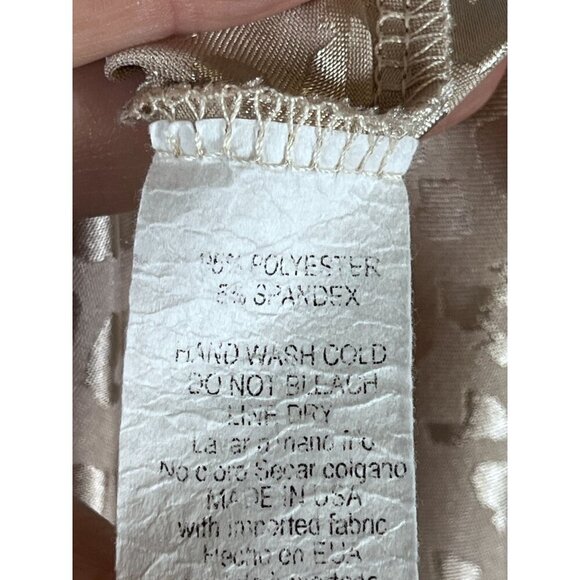 95% POLYESTER
5% SPANDEX
HAND WASH COLD
DO NOT BLEACH
LINE DRY
Lavar a mano frio
No cloro Secar colgano
MADE IN USA
with imported fabric
Hecho en EUA